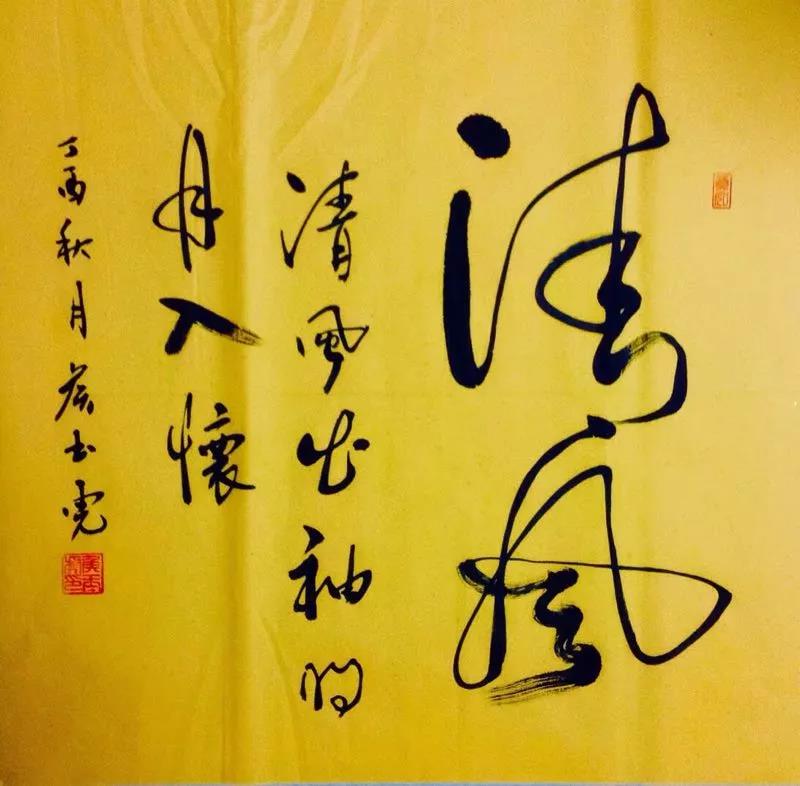 清風
清風出袖明
月入懷
丁酉秋月